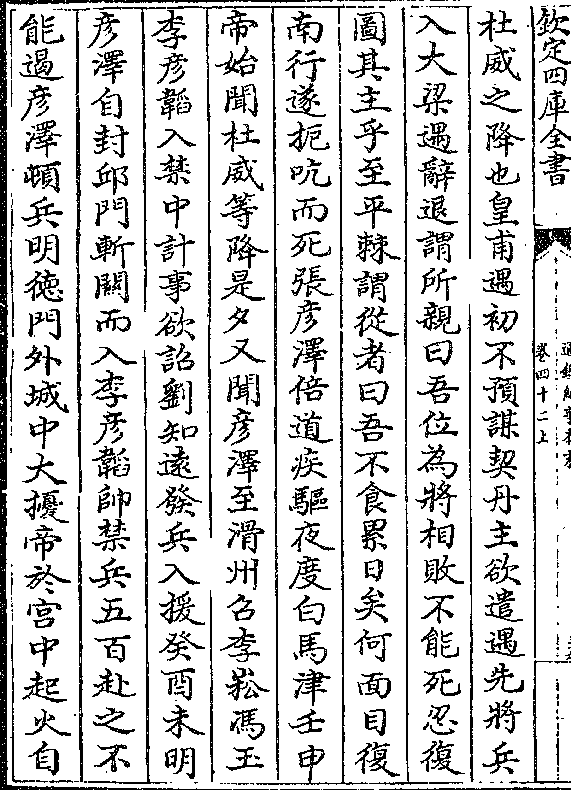 欽定四庫全書
通鑑紀事本末
卷四十二上
杜威之降也皇甫遇初不預謀契丹主欲遣遇先將兵
入大梁遇辭退謂所親曰吾位為將相敗不能死忍復
圖其主乎至平棘謂從者曰吾不食累日矣何面目復
南行遂扼吭而死張彦澤倍道疾驅夜度白馬津壬申
帝始聞杜威等降是夕又聞彦澤至滑州召李崧馮玉
李彦韜入禁中計事欲詔劉知遠發兵入援癸酉未明
彦澤自封邱門斬關而入李彦韜帥禁兵五百赴之不
能遏彦澤頓兵明德門外城中大擾帝於宫中起火自